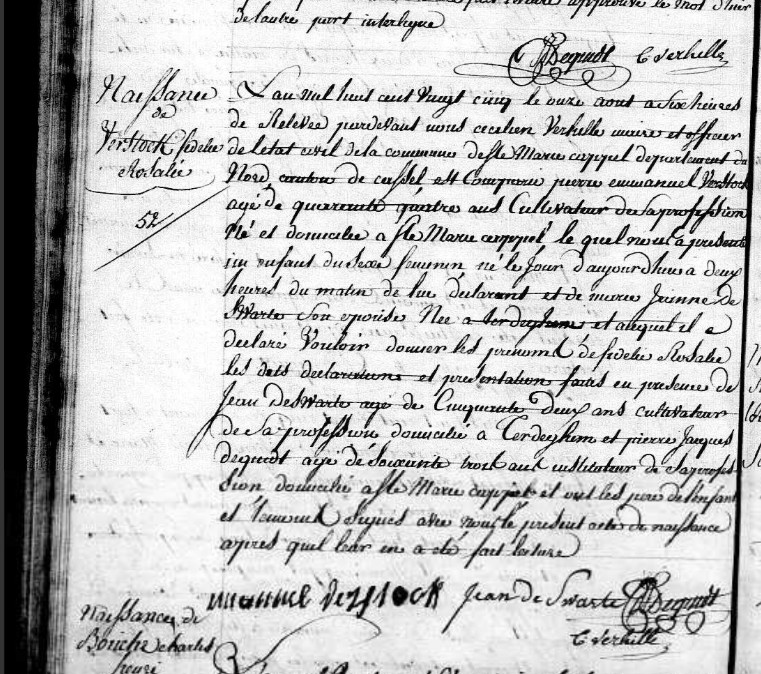 de l'autre part interligne
PJDequidt C Verhille
Naissance
de
Verstock fidelie
Rosalie
52
L'an mil huit cent vingt cinq le onze aout a six heures
de Relevée pardevant nous Verhille maire et officier
de letat civil de la commune de Ste Marie cappel departement du
Nord canton de cassel est Comparu pierre emmanuel Verstock
agé de quarente quatre ans Cultivateur de sa profession
Né et domicilié a Ste Marie cappel le quel nous a presenté
un enfant du sexe feminin né le Jour d'aujourdhui a deux
heures du matin de lui déclarant et de marie Jeanne de
Swarte Son epouse Née a terdeghem et auquel il a
declaré Vouloir donner les prenoms de fidelie Rosalie
les dits declarations et presentation faits en presence de
Jean de Swarte agé de Cinquante deux ans cultivateur
de sa profession domicilié a Terdeghem et pierre Jacques
dequidt agé de Soixente trois ans instituteur de sa profes
sion domicilié a Ste Marie cappel et ont les pere de l'enfant
et temoins signés avec nous le present acte de naissance
apres quil leur en a été fait lecture
Jean de Swarte PJDequidt
C Verhille
Naissance de
Bouiche charles
henri